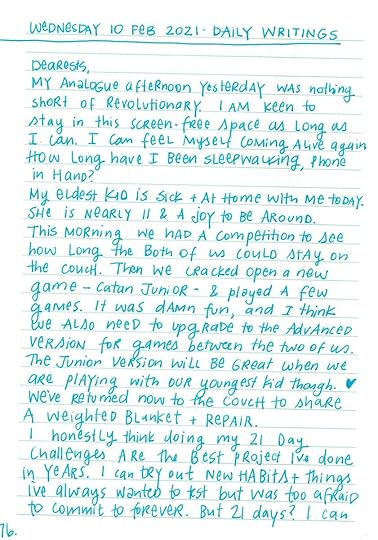 WEDNESDAY 10 FEB 2021 · DAILY WRITINGS
DEARESTS,
MY ANALOGUE AFTERNOON YESTERDAY WAS NOTHING
SHORT OF REVOLUTIONARY. I AM KEEN TO
STAY IN THIS SCREEN-FREE SPACE AS LONG AS
I CAN. I CAN FEEL MYSELF COMING ALIVE AGAIN
HOW LONG HAVE I BEEN SLEEPWALKING, PHONE
IN HAND?
MY ELDEST KID IS SICK + AT HOME WITH ME TODAY.
SHE IS NEARLY 11 & A JOY TO BE AROUND.
THIS MORNING WE HAD A COMPETITION TO SEE
HOW LONG THE BOTH OF US COULD STAY ON
THE COUCH. THEN WE CRACKED OPEN A NEW
GAME - CATAN JUNIOR - & PLAYED A FEW
GAMES. IT WAS DAMN FUN, AND I THINK
WE ALSO NEED TO UPGRADE TO THE ADVANCED
VERSION FOR GAMES BETWEEN THE TWO OF US.
THE JUNIOR VERSION WILL BE GREAT WHEN WE
ARE PLAYING WITH OUR YOUNGEST KID THOUGH. ♥
WE'VE RETURNED NOW TO THE COUCH TO SHARE
A WEIGHTED BLANKET + REPAIR.
I HONESTLY THINK DOING MY 21 DAY
CHALLENGES ARE THE BEST PROJECT I'VE DONE
IN YEARS. I CAN TRY OUT NEW HABITS + THINGS
I'VE ALWAYS WANTED TO TEST BUT WAS TOO AFRAID
TO COMMIT TO FOREVER. BUT 21 DAYS? I CAN
76.